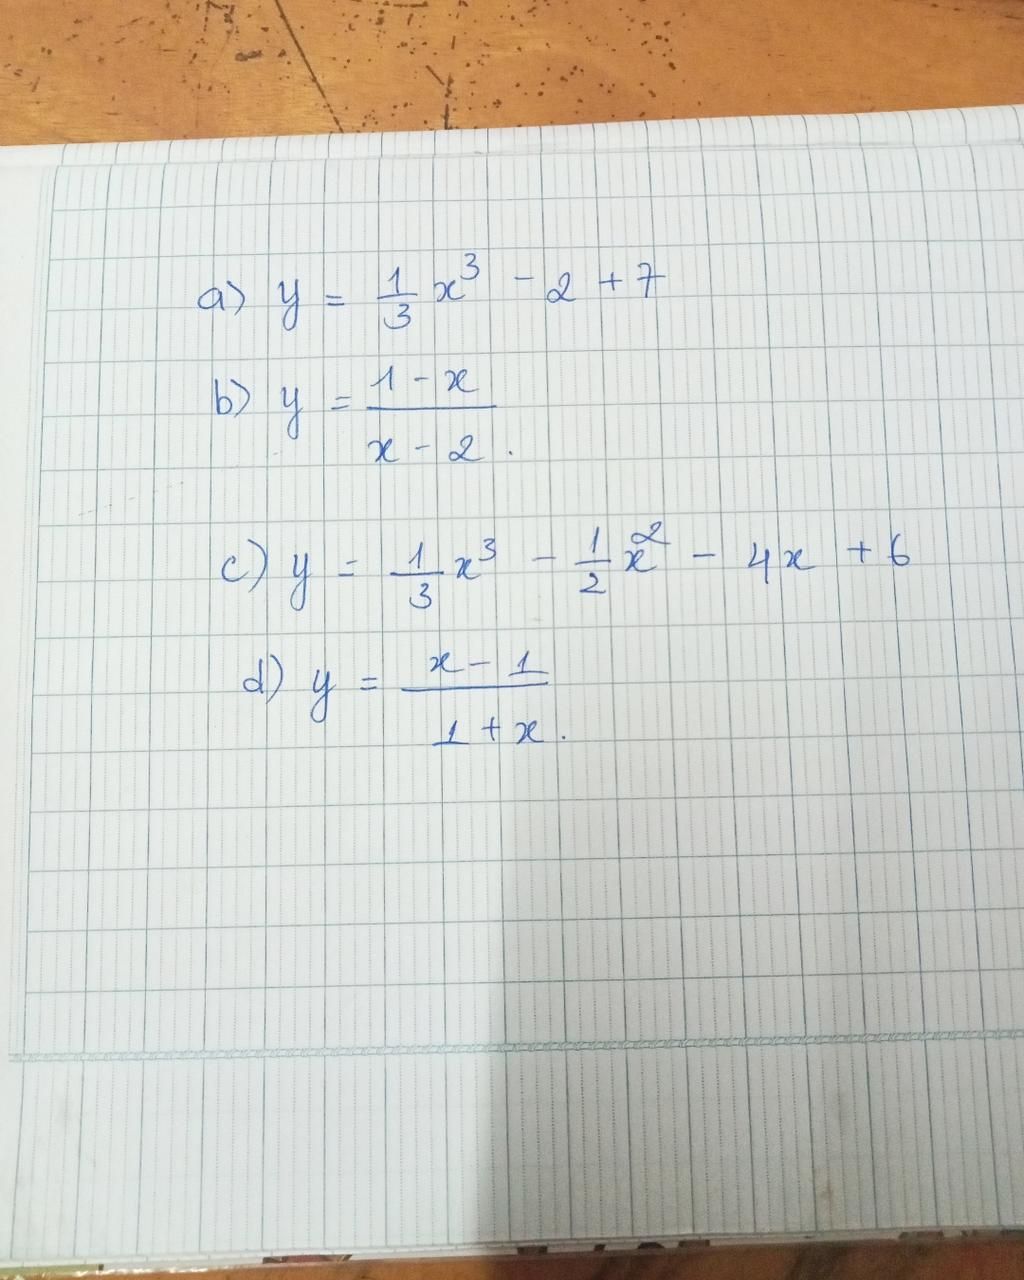 a) y = 1/3 x³ - 2 + 7
b) y = (1 - x)/(x - 2).
c) y = 1/3 x³ - 1/2 x² - 4x + 6
d) y = (x - 1)/(1 + x).